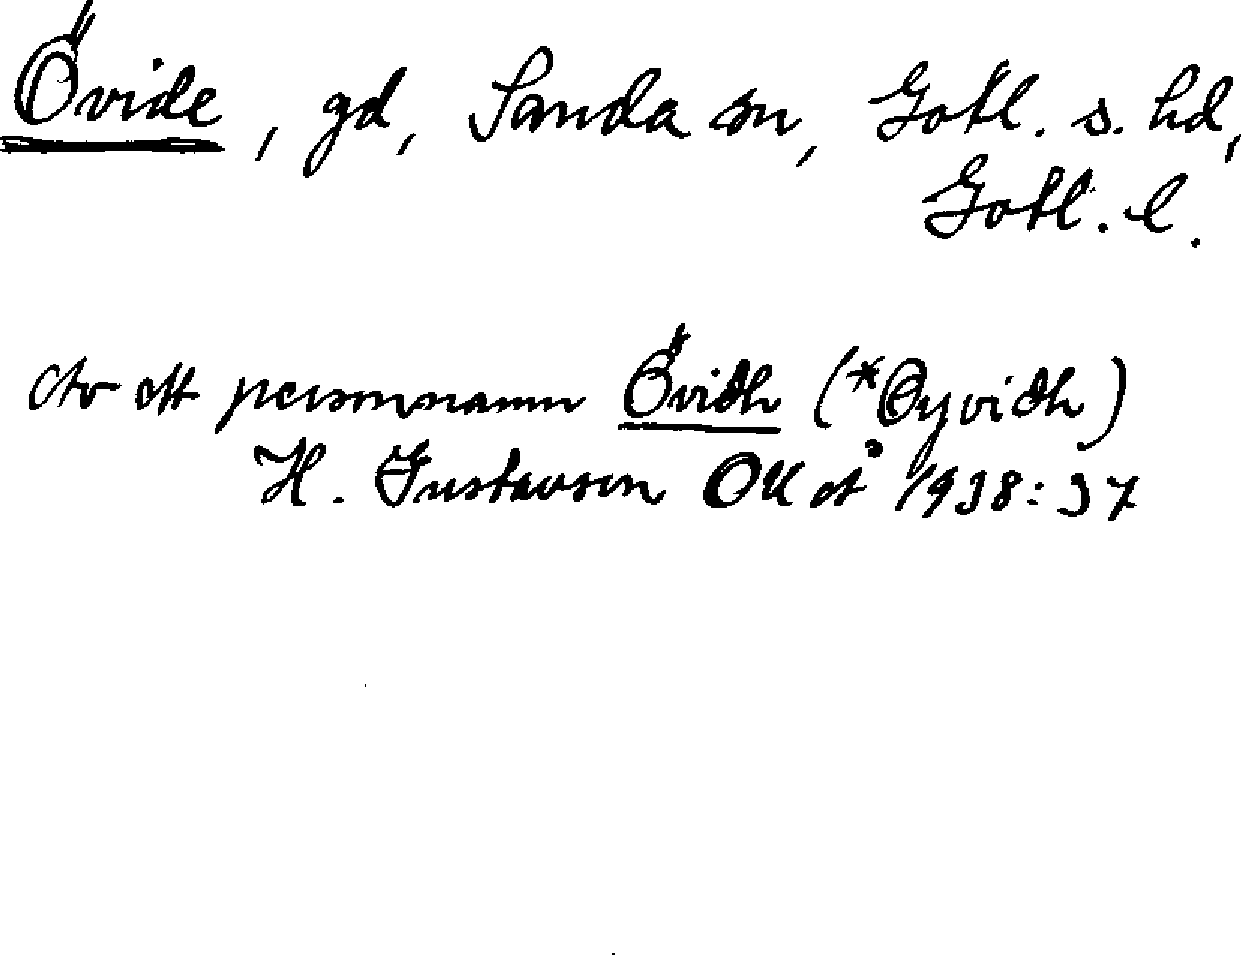 Övide, gd, Sanda sn, Gotl. s. hd,
Gotl. l.
Av ett personnamn Övidh (*Øyvidh)
H. Gustavson OUÅ 1938:37